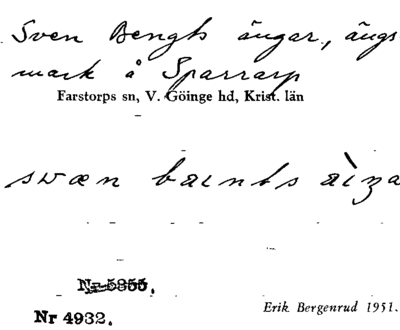 Sven Bengts ängar, ängs
mark å Sparrarp
Farstorps sn, V. Göinge hd, Krist. län
swæn bæints äiza
Nr 5855.
Nr 4932.
Erik Bergenrud 1951.